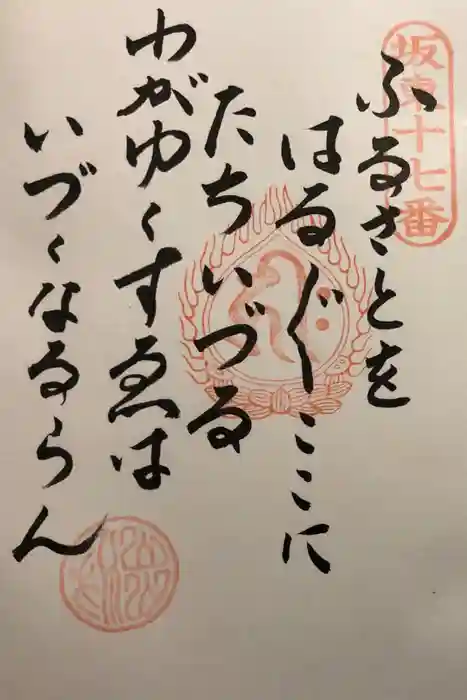 坂東十七番
ふるさとを
はる〴〵ここに
たちいづる
わがゆくすゑは
いづくなるらん